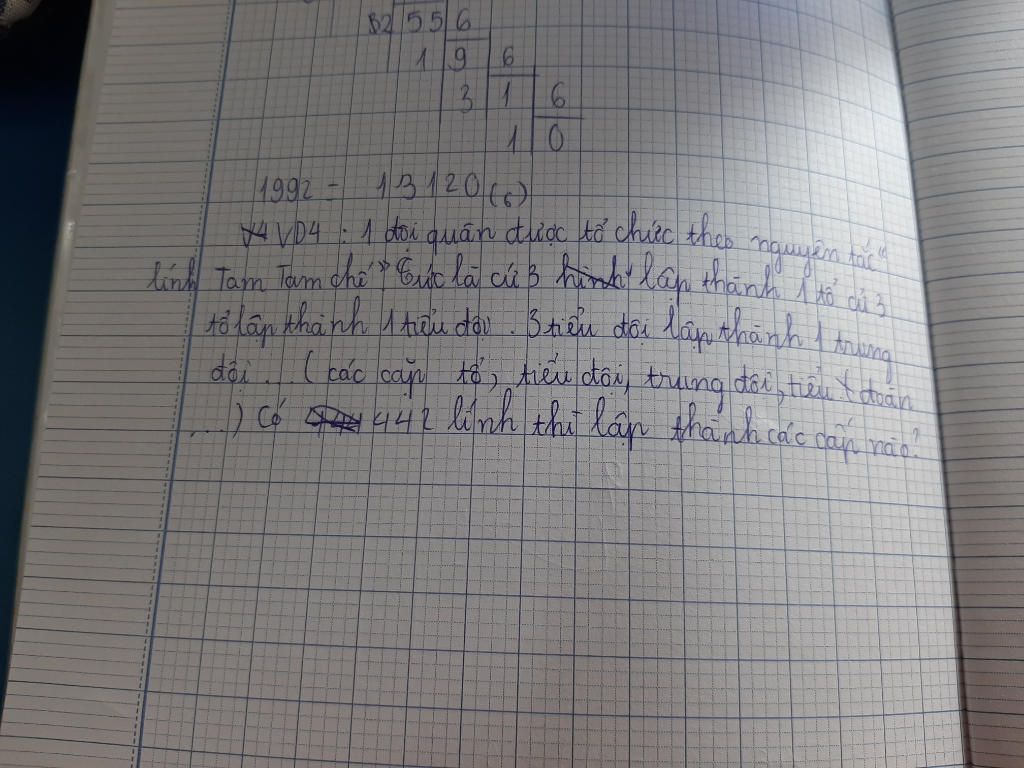 32 55 6
1 9 6
3 1 6
1 0
1992 = 13120(6)
VD4 : 1 đội quân được tổ chức theo nguyên tắc "
lính Tam Tam chế" Tức là cứ 3 lập thành 1 tổ cứ 3
tổ lập thành 1 tiểu đội . 3 tiểu đội lập thành 1 trung
đội ... ( các cấp tổ, tiểu đội, trung đội, tiểu đoàn
....) Có 442 lính thì lập thành các cấp nào?